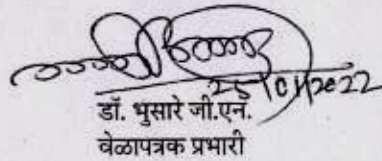 25/01/2022
डॉ. भुसारे जी.एन.
वेळापत्रक प्रभारी